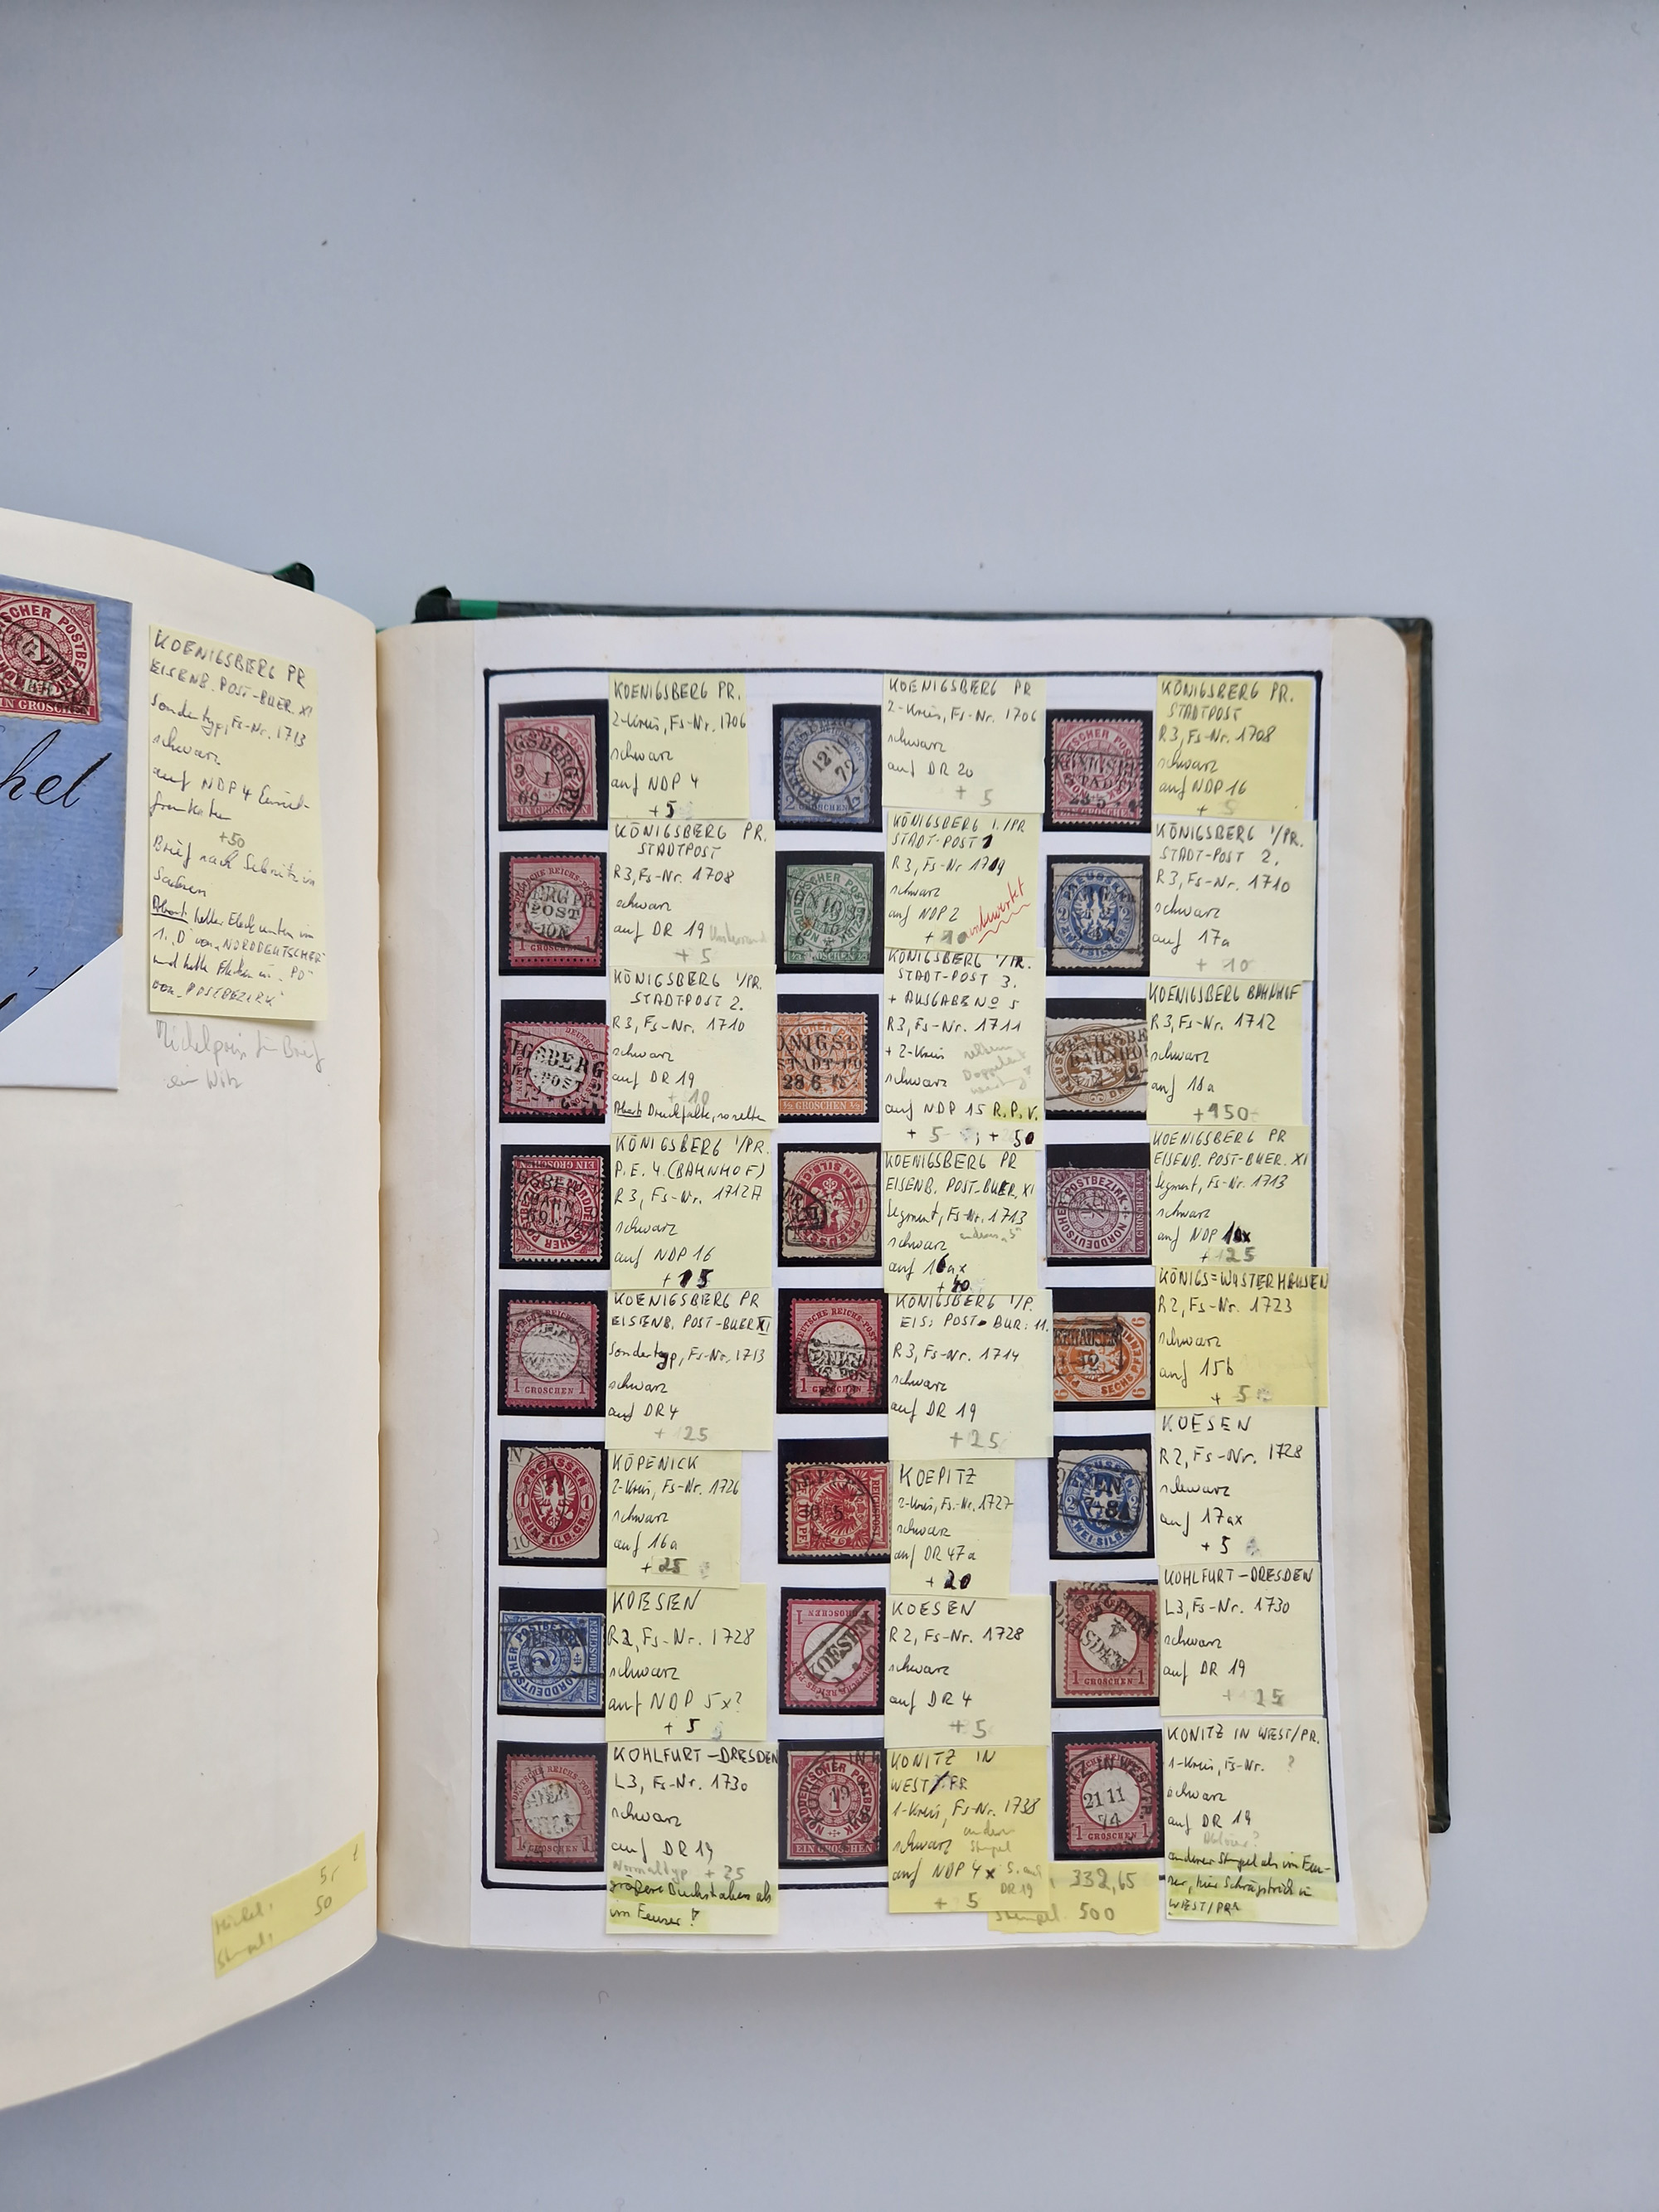 SCHER POSTBE
EIN GROSCHEN
hel
KOENIGSBERG PR
EISENB. POST-BUER. XI
Sondertyp, Fs-Nr. 1713
schwarz
auf NDP 4 Einzel-
frankatur
+50
Brief nach Sebnitz in
Sachsen
Abart: heller Fleck unten im
1. „D" von „NORDDEUTSCHER"
und helle Flecken in „PO"
von „POSTBEZIRK"
Michelpreis für Brief
ein Witz
Michel:
Stempel: 50
KOENIGSBERG PR.
2-Kreis, Fs-Nr. 1706
schwarz
auf NDP 4
+5
KOENIGSBERG PR
2-Kreis, Fs-Nr. 1706
schwarz
auf DR 20
+ 5
KÖNIGSBERG PR.
STADTPOST
R3, Fs-Nr. 1708
schwarz
auf NDP 16
+ 5
KÖNIGSBERG PR.
STADTPOST
R3, Fs-Nr. 1708
schwarz
auf DR 19 Unterrand
+ 5
KÖNIGSBERG I./PR
STADT-POST 1
R3, Fs-Nr 1709
schwarz
auf NDP 2
KÖNIGSBERG 1/PR.
STADT-POST 2.
R3, Fs-Nr. 1710
schwarz
auf 17a
+ 10
KÖNIGSBERG 1/PR.
STADTPOST 2.
R3, Fs-Nr. 1710
schwarz
auf DR 19
+ 10
Abart: Druckfalte, so selten
KÖNIGSBERG 1/PR.
STADT-POST 3.
+ AUSGABE No 5
R3, Fs-Nr. 1711
+ 2-Kreis
schwarz
auf NDP 15 R.P.V.
+ 5 ; + 50
KOENIGSBERG BAHNHOF
R3, Fs-Nr. 1712
schwarz
auf 18a
+150
KÖNIGSBERG 1/PR.
P.E. 4. (BAHNHOF)
R3, Fs-Nr. 1712A
schwarz
auf NDP 16
+ 15
KOENIGSBERG PR
EISENB. POST-BUER. XI
Segment, Fs-Nr. 1713
schwarz
auf 16ax
+ 40
KOENIGSBERG PR
EISENB. POST-BUER. XI
Segment, Fs-Nr. 1713
schwarz
auf NDP 1ax
+ 125
KOENIGSBERG PR
EISENB. POST-BUER XI
Sondertyp, Fs-Nr. 1713
schwarz
auf DR 4
+ 25
KÖNIGSBERG 1/P.
EIS: POST-BUR: 11.
R3, Fs-Nr. 1714
schwarz
auf DR 19
+25
KÖNIGS=WUSTERHAUSEN
R2, Fs-Nr. 1723
schwarz
auf 15b
+ 5
KÖPENICK
2-Kreis, Fs-Nr. 1726
schwarz
auf 16a
+ 25
KOEPITZ
2-Kreis, Fs-Nr. 1727
schwarz
auf DR 47a
+ 20
KOESEN
R2, Fs-Nr. 1728
schwarz
auf 17ax
+ 5
KOESEN
R2, Fs-Nr. 1728
schwarz
auf NDP 5x?
+ 5
KOESEN
R2, Fs-Nr. 1728
schwarz
auf DR 4
+ 5
KOHLFURT-DRESDEN
L3, Fs-Nr. 1730
schwarz
auf DR 19
+ 25
KOHLFURT-DRESDEN
L3, Fs-Nr. 1730
schwarz
auf DR 19
Normaltyp + 25
größere Buchstaben als
im Feuser!
KONITZ IN
WEST/PR
1-Kreis, Fs-Nr. 1738
schwarz
anderer
Stempel
auf NDP 4x
S. auf
DR 19
+ 5
332,65
Stempel 500
KONITZ IN WEST/PR.
1-Kreis, Fs-Nr. ?
schwarz
auf DR 19
anderer Stempel als im Feu-
ser, hier Schrägstrich in
WEST/PR.